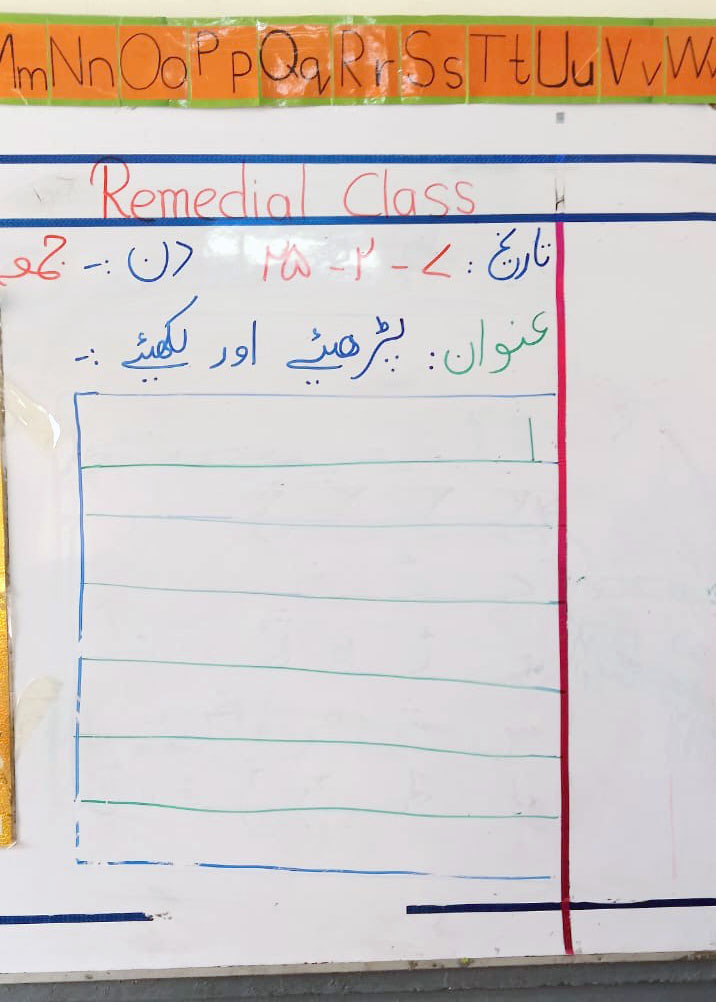 Mm Nn Oo Pp Qq Rr Ss Tt Uu Vv Ww
Remedial Class
تاریخ : ۷ - ۲ - ۲۵ دن :-
عنوان : پڑھیئے اور لکھیئے :-
ا